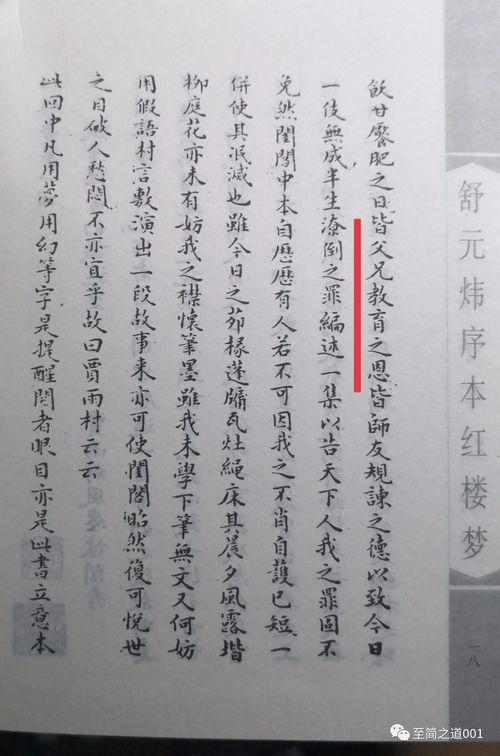 飲甘饜肥之日皆父兄教育之恩皆師友規諫之德以致今日
一伎無成半生潦倒之罪編述一集以告天下人我之罪固不
免然閨閣中本自歷歷有人若不可因我之不肖自護已短一
併使其泯滅也雖今日之茆椽蓬牖瓦灶繩床其晨夕風露堦
柳庭花亦未有妨我之襟懷筆墨雖我未學下筆無文又何妨
用假語村言敷演出一段故事来亦可使閨閣昭然復可悅世
之目破人愁悶不亦宜乎故曰賈雨村云云
此回中凡用夢用幻等字是提醒閱者眼目亦是此書立意本
舒元炜序本红楼梦
一八
至简之道001